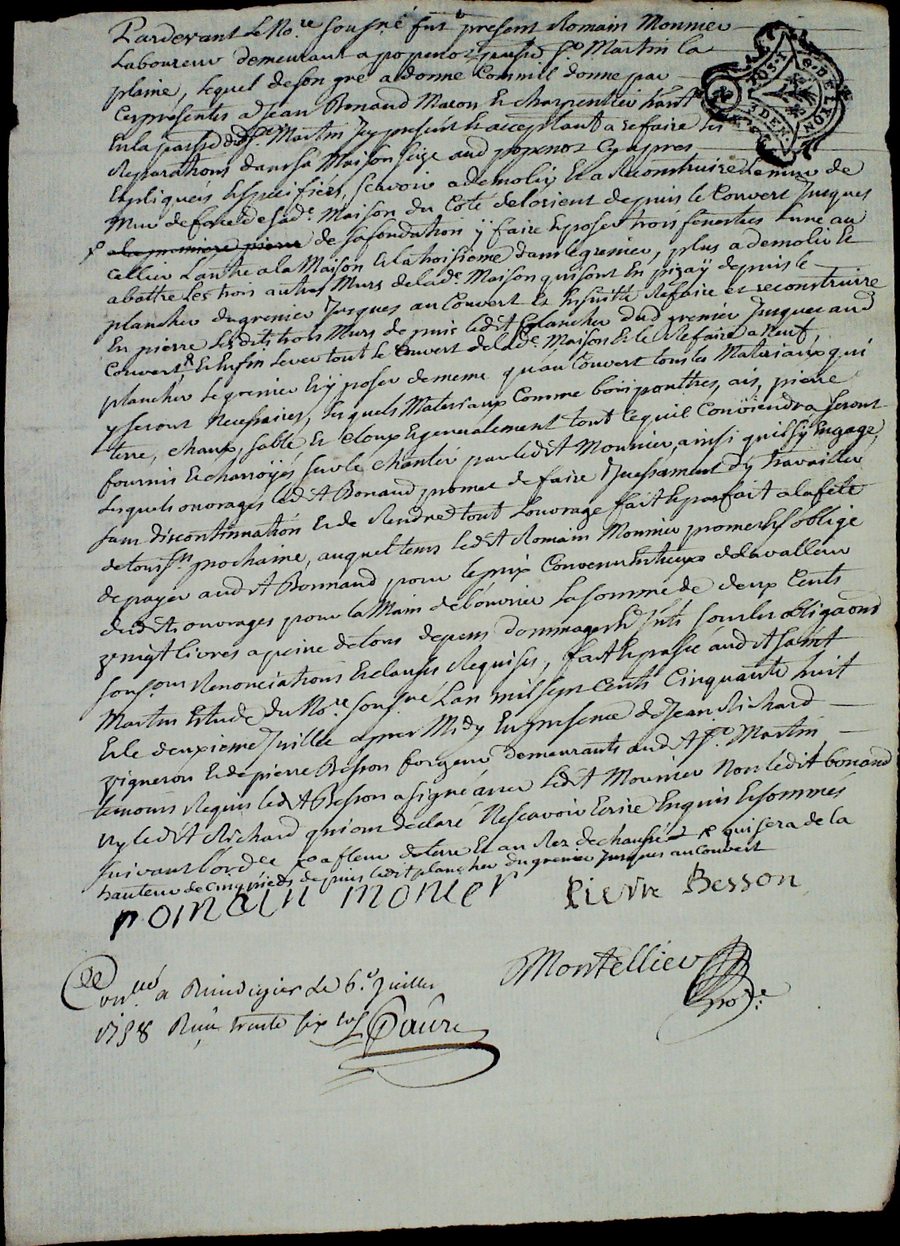 Pardevant Le No.re sousne fut present Romain Monnier
Laboureur demeurant a popenot parsse St. Martin la
plaine, lequel de son gre a donne Comme il donne par
Ces presentes a Jean Bonnand Macon Et charpentier habt.
En la parsse dud. St. Martin Icy present Et acceptant a refaire les
Reparations dans sa Maison Size aud popenot Cy apres
Expliqueés Et specifieés, scavoir a demolir Et a Reconstruire de
Mur de face de sad.e Maison du Coté de lorient depuis le Couvert Jusques
a la premiere pierre de sa fondation y faire Et poser trois fenestres Lune au
Cellier Lautre a la Maison Et la troisieme dans le grenier, plus a demolir Et
abattre Les trois autres Murs de lad.e Maison qui sont En pizay depuis le
plancher du grenier Jusques au Couvert Et Ensuitte Refaire et reconstruire
En pierre Lesdits trois Murs depuis ledit plancher dud grenier Jusques aud
Couvert, Et Enfin Lever tout Le Couvert de lad.e Maison Et le Refaire a neuf,
plancher Le grenier Et y poser de meme qu'au Couvert tous les Materiaux qui
y seront Necessaires, Lesquels Materiaux Comme bois pouttres, ais, pierre
terre, chaux, sable, Et cloux Et generalement tout Ce quil Conviendra seront
fournis Et charroyés sur le chantier par ledit Monnier, ainsi quil sy Engage,
Lesquels ouvrages ledit Bonand promet de faire Incessament dy travailler
sans discontinuation Et de Rendre tout Louvrage fait Et parfait a la fete
de touss.ts prochaine, auquel tems ledit Romain Monnier promet Et s'oblige
de payer audit Bonnand pour le prix Convenu Entreux de la valleur
desdits ouvrages pour la Main de louvrier La somme de deux Cents
vingt livres a peine de tous depens dommages Et Ints sous les obligaons
sousons Renonciations Et clauses Requises, fait Et passé audit saint
Martin Etude du No.re sousne Lan mil sept Cents Cinquante huit
Et le deuxieme Juillet apres Midy En presence de Jean Richard
vigneron Et de pierre Besson forgeur demeurants audit St. Martin
temoins Requis ledit Besson a signé avec ledit Monnier Non ledit bonand
Ny ledit Richard qui ont declaré Ne scavoir Ecrire Enquis Et sommés
suivant lord.ce a fleur de terre Et au Rez de chaussée qui sera de la
hauteur de Cinq pieds depuis ledit plancher du grenier Jusques au Couvert
romain monier Pierre Besson
Montellier
no.re
Con.llé a Rivedegier Le 6.e Juillet
1758 Reçu trente six sols Faure
G. DE LYON
3 DEN.